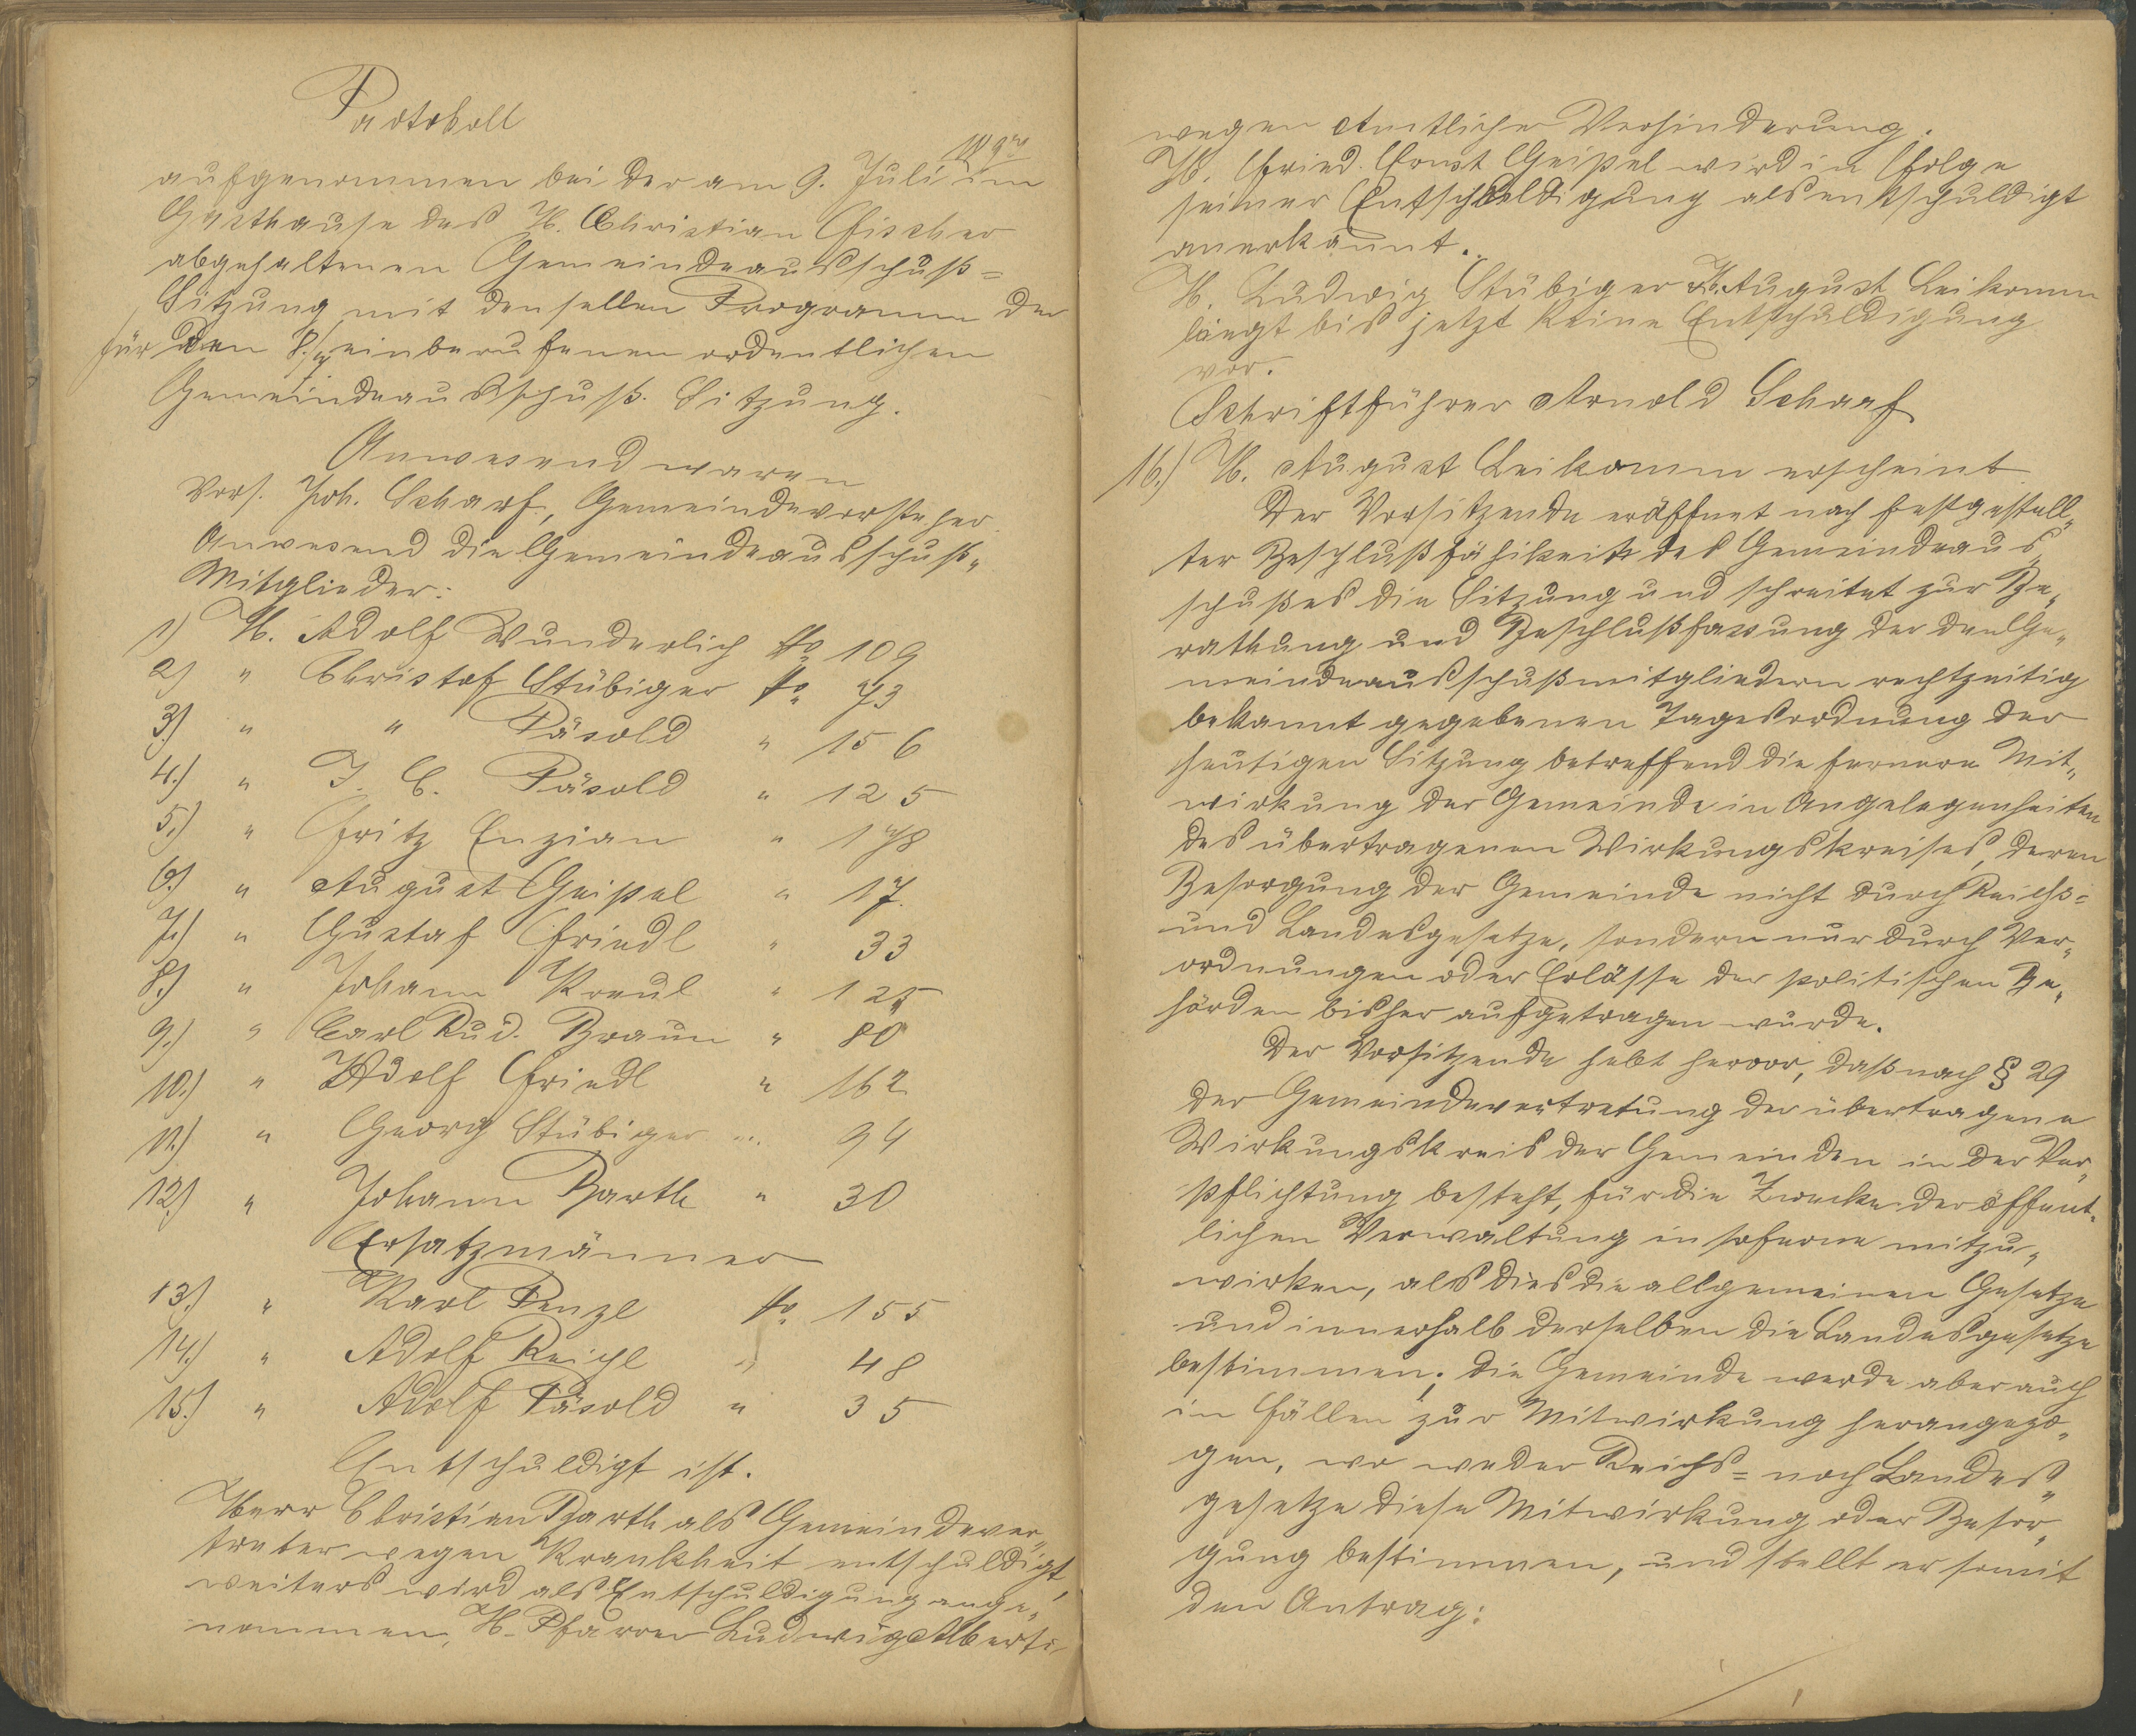 Protokoll
aufgenommen bei der am 9. Juli im
Gasthause des H. Christian Fischer
abgehaltenen Gemeindeausschuß=
Sitzung mit denselben Programm der
für den 8./7 einberufenen ordentlichen
Gemeindeausschuß. Sitzung.
Anwesend waren
Vors. Joh. Scharf, Gemeindevorsteher
Anwesend die Gemeindeausschuß„
Mitglieder:
1) H. Adolf Wunderlich No 109
2) " Christof Stübiger No 73
3.) " " Päsold " 156
4.) " J. C. Päsold " 125
5.) " Fritz Enzian " 178
6.) " August Geipel " 17.
7.) " Gustaf Friedl " 33
8.) " Johann Kreul " 125
9.) " Carl Rud. Braun " 80
10.) " Adolf Friedl " 162
11.) " Georg Stübiger " 94
12.) " Johann Barth " 30
Ersatzmänner
13.) " Karl Penzl No 155
14.) " Adolf Reichl " 48
15.) " Adolf Päsold " 35
Entschuldigt ist.
Herr Christian Barth als Gemeindever„
treter wegen Krankheit entschuldigt,
weiters wird als Entschuldigung ange„
nommen, H. Pfarrer Ludwig Alberti
wegen Amtlicher Verhinderung.
H. Fried. Ernst Geipel wird in Folge
seiner Entschuldigung als entschuldigt
anerkannt.
H. Ludwig Stübiger H. August Leikamm
liegt bis jetzt keine Entschuldigung
vor.
Schriftführer Arnold Scharf
16.) H. August Leikamm erscheint
Der Vorsitzende eröffnet nach festgestell„
ter Beschlußfähikeit des Gemeindeaus„
schußes die Sitzung und schreitet zur Be„
rathung und Beschlußfassung der den Ge„
meindeausschußmitgliedern rechtzeitig
bekannt gegebenen Tagesordnung der
heutigen Sitzung betreffend die fernere Mit„
wirkung der Gemeinde in Angelegenheiten
des übertragenen Wirkungskreises, deren
Besorgung der Gemeinde nicht durch Reichs=
und Landesgesetze, sondern nur durch Ver„
ordnungen oder Erlässe der politischen Be„
hörden bisher aufgetragen wurde.
Der Vorsitzende hebt hervor, daß nach § 29
der Gemeindevertretung der übertragene
Wirkungskreis der Gemeinden in der Ver„
pflichtung besteht, für die Zwecke der öffent„
lichen Verwaltung in soferne mitzu„
wirken, als dies die allgemeinen Gesetze
und innerhalb derselben die Landesgesetze
bestimmen; die Gemeinde werde aber auch
in Fällen zur Mitwirkung herangezo„
gen, wo weder Reichs= noch Landes„
gesetze diese Mitwirkung oder Besor„
gung bestimmen, und stellt er somit
den Antrag: